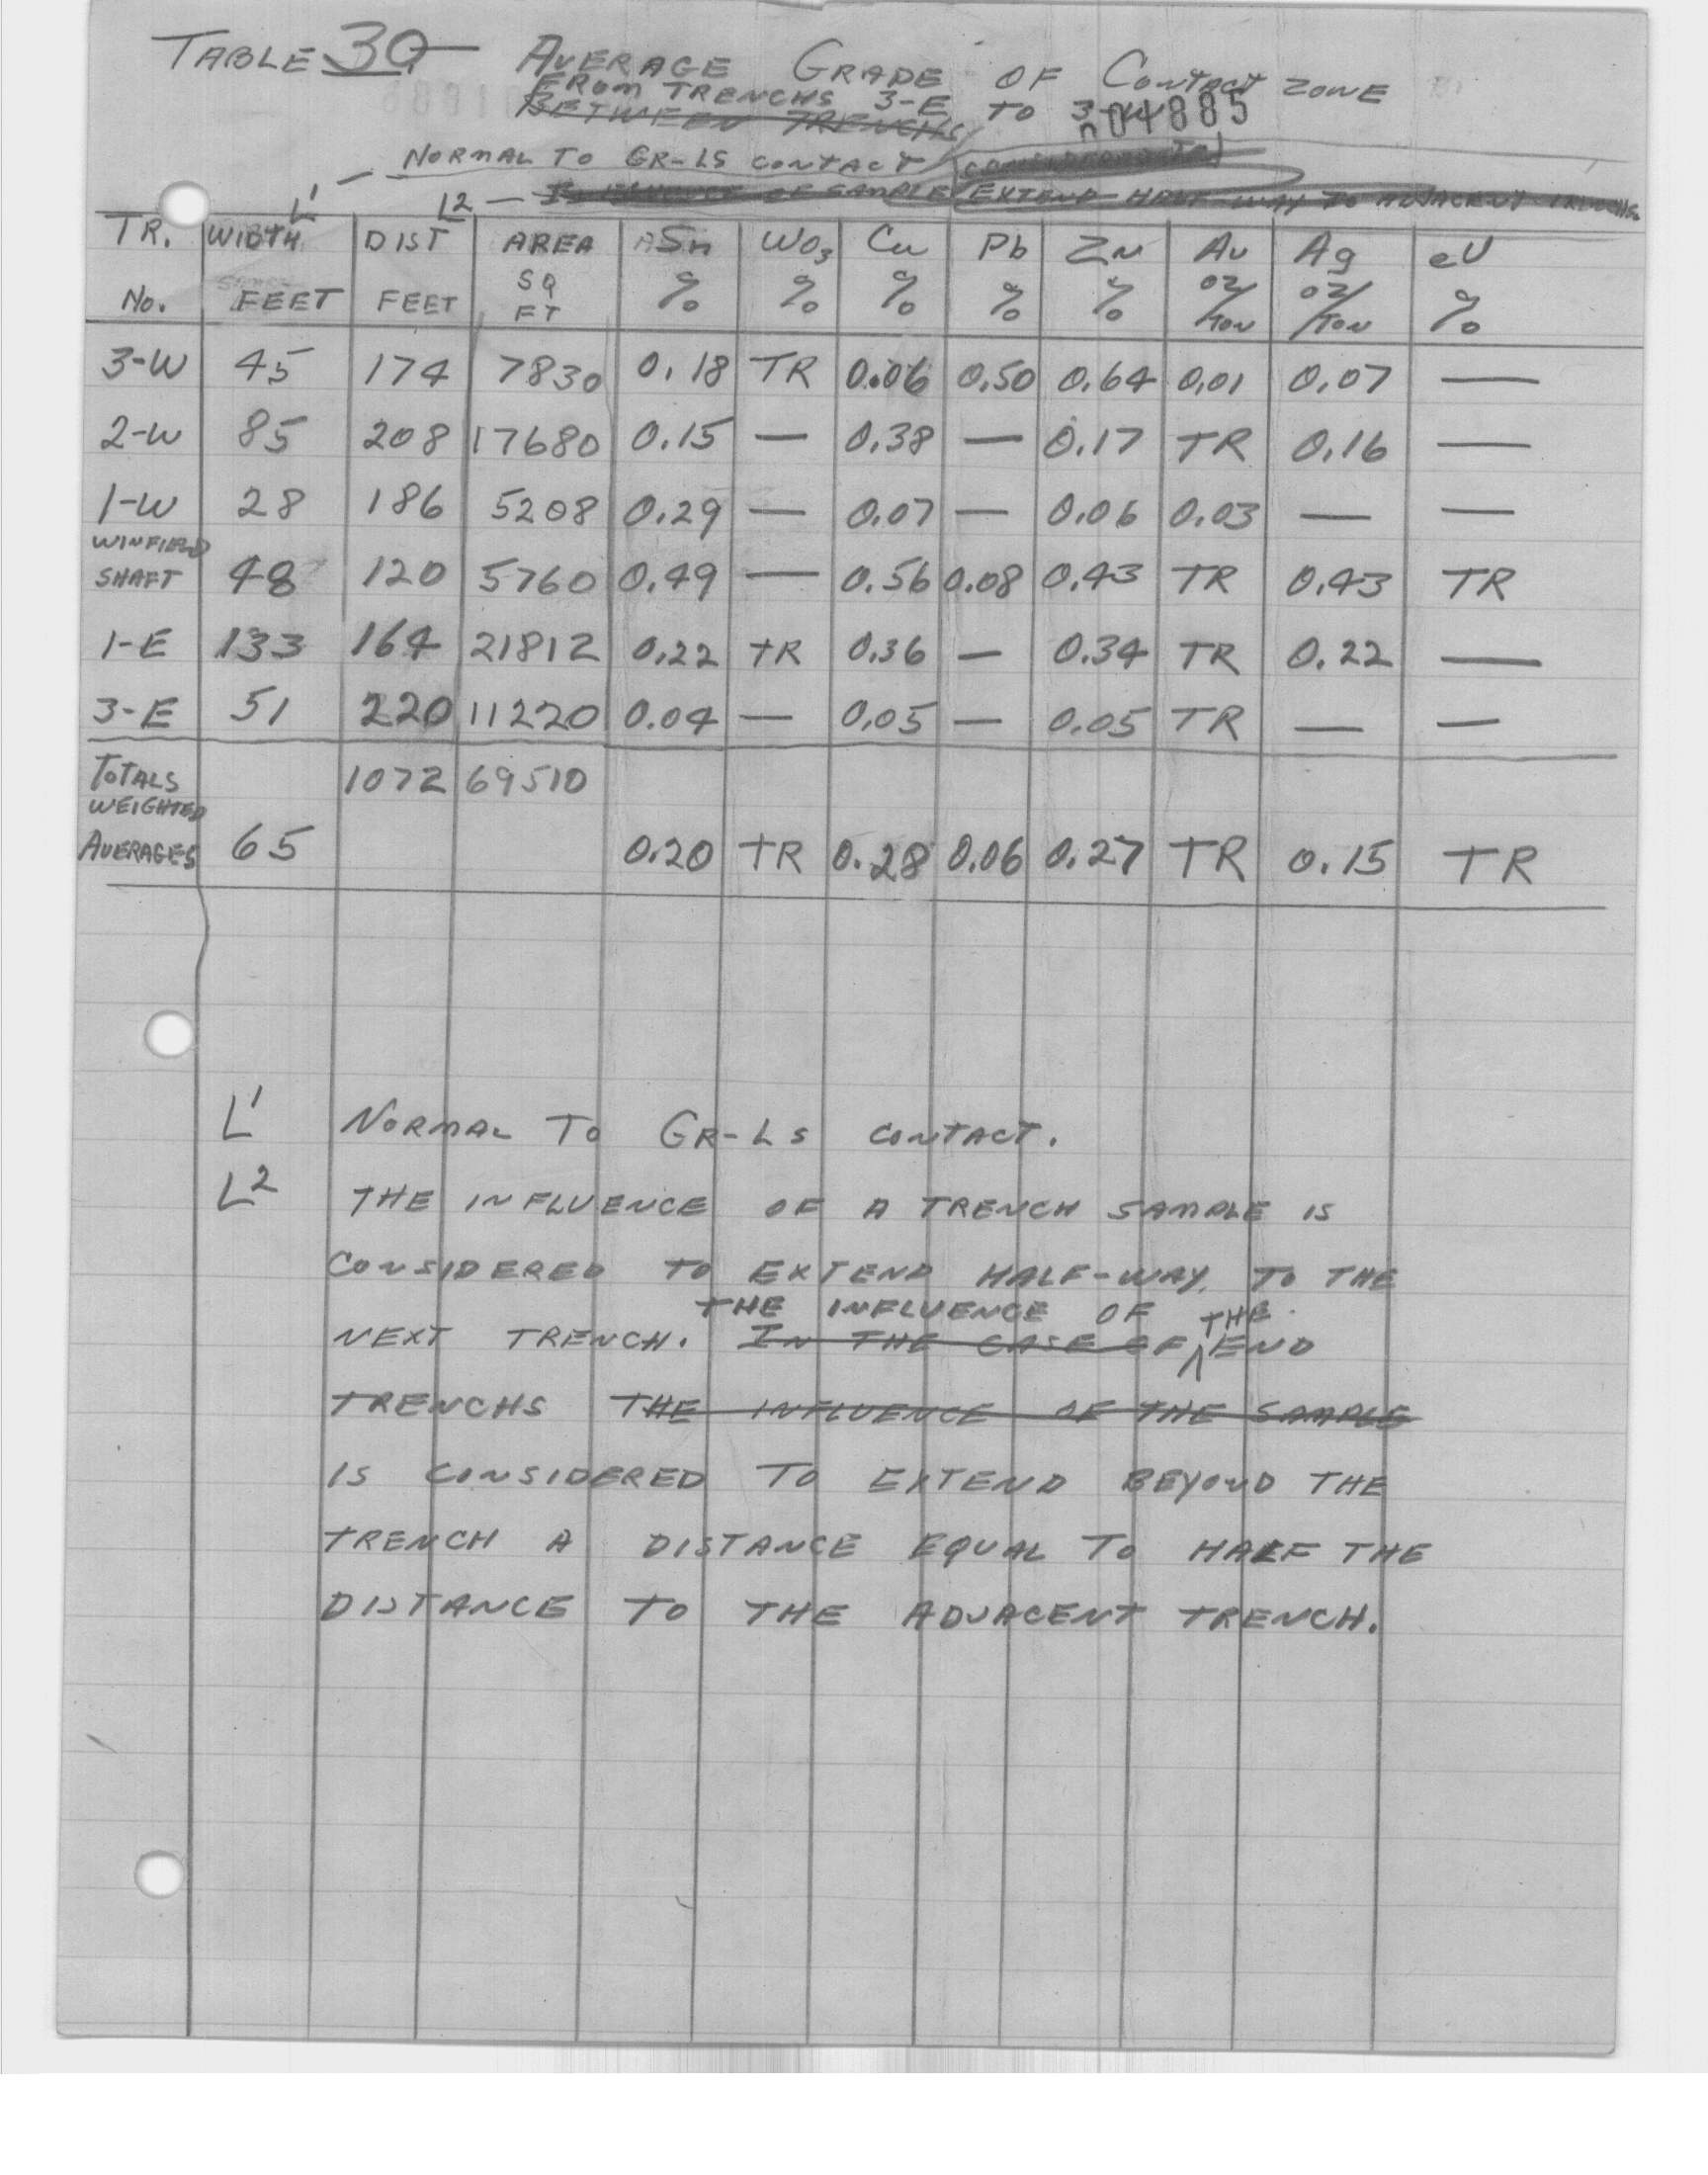 TABLE 30 — AVERAGE GRADE OF CONTACT ZONE
FROM TRENCHS 3-E TO 3-W
BETWEEN TRENCHS
004885
L1 — NORMAL TO GR-LS CONTACT
L2 — INFLUENCE OF SAMPLE EXTEND HALF WAY TO ADJACENT TRENCHS
TR. WIDTH L1 DIST L2 AREA Sn WO3 Cu Pb Zn Au Ag eU
No. FEET FEET SQ FT % % % % % OZ/TON OZ/TON %
3-W 45 174 7830 0.18 TR 0.06 0.50 0.64 0.01 0.07 —
2-W 85 208 17680 0.15 — 0.38 — 0.17 TR 0.16 —
1-W 28 186 5208 0.29 — 0.07 — 0.06 0.03 — —
WINFIELD
SHAFT 48 120 5760 0.49 — 0.56 0.08 0.43 TR 0.43 TR
1-E 133 164 21812 0.22 TR 0.36 — 0.34 TR 0.22 —
3-E 51 220 11220 0.04 — 0.05 — 0.05 TR — —
TOTALS 1072 69510
WEIGHTED
AVERAGES 65 0.20 TR 0.28 0.06 0.27 TR 0.15 TR
L1 NORMAL TO GR-LS CONTACT.
L2 THE INFLUENCE OF A TRENCH SAMPLE IS
CONSIDERED TO EXTEND HALF-WAY TO THE
THE INFLUENCE OF THE
NEXT TRENCH. IN THE CASE OF END
TRENCHS THE INFLUENCE OF THE SAMPLE
IS CONSIDERED TO EXTEND BEYOND THE
TRENCH A DISTANCE EQUAL TO HALF THE
DISTANCE TO THE ADJACENT TRENCH.